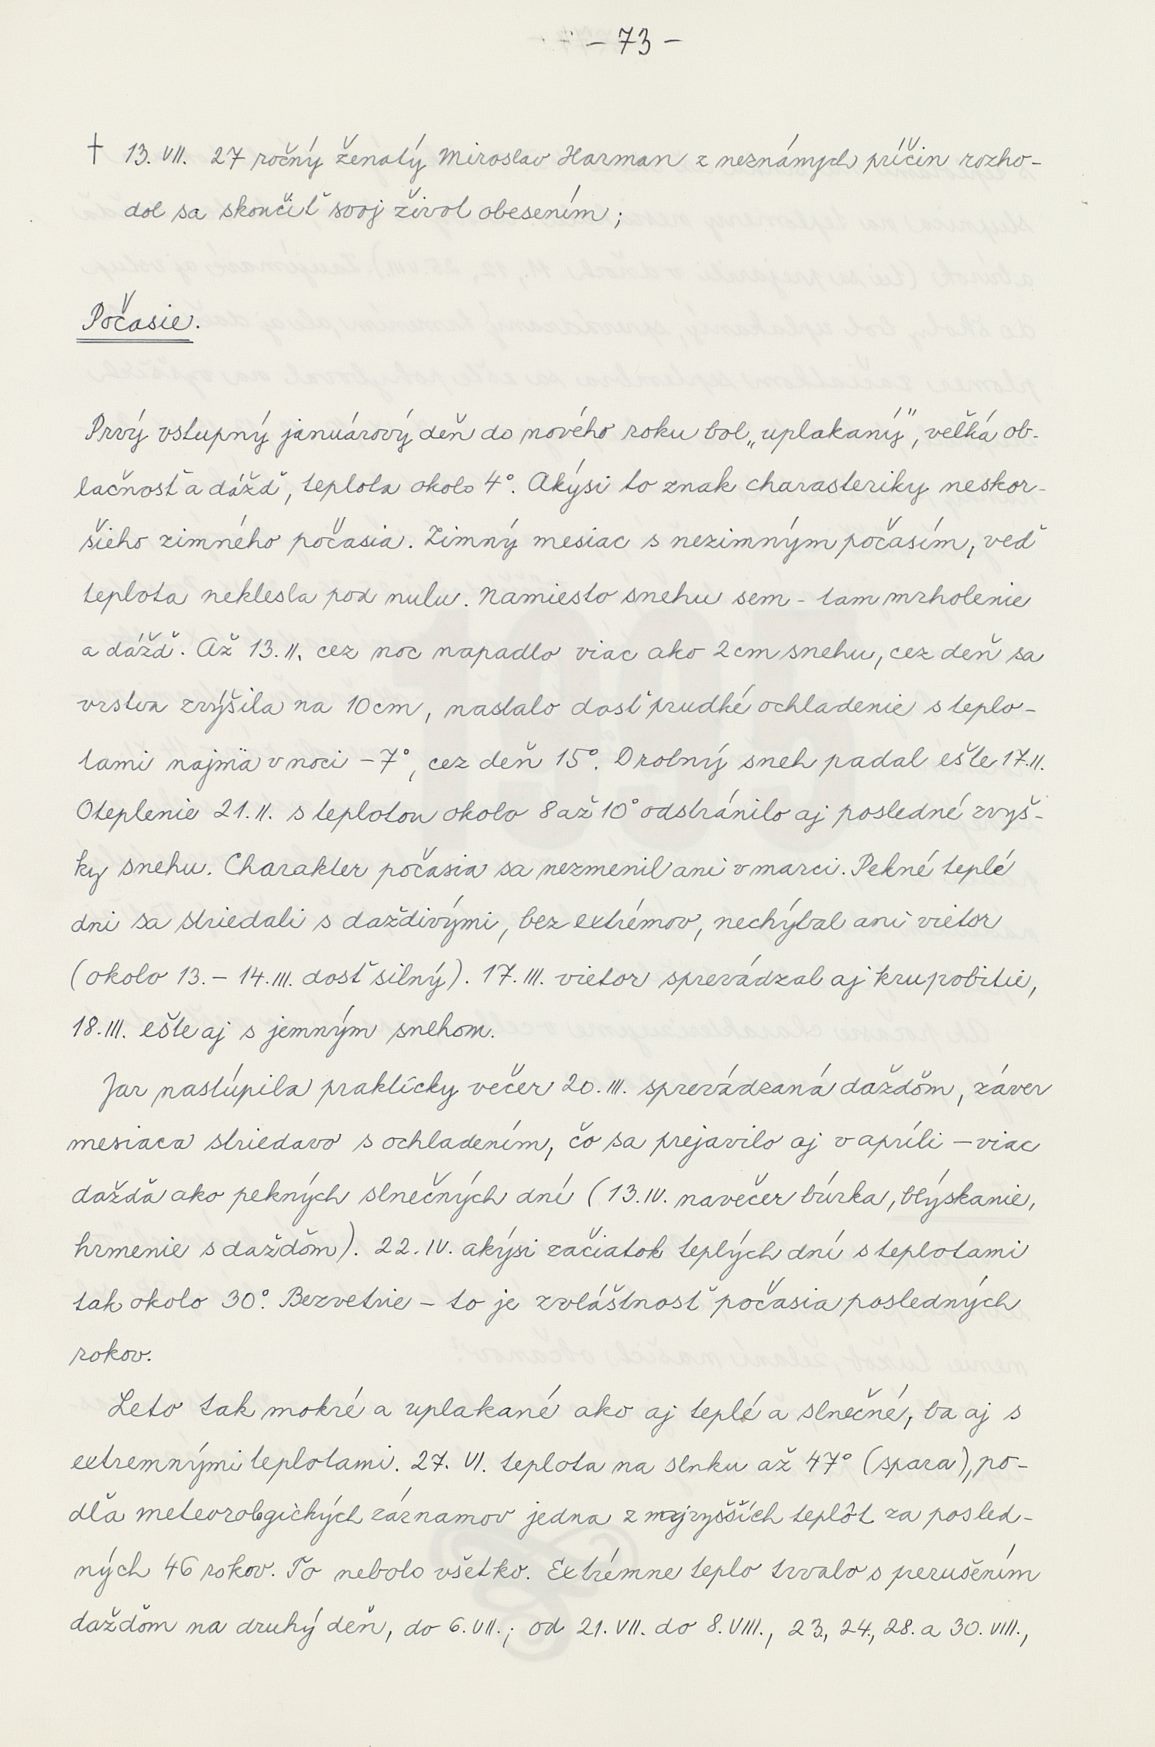 - 73 -
† 13. VII. 27 ročný ženatý Miroslav Harman z neznámych príčin rozho-
dol sa skončiť svoj život obesením;
Počasie.
Prvý vstupný januárový deň do nového roku bol „uplakaný", veľká ob-
lačnosť a dážď, teplota okolo 4°. Akýsi to znak charasteriky neskor-
šieho zimného počasia. Zimný mesiac s nezimným počasím, veď
teplota neklesla pod nulu. Namiesto snehu sem-tam mrholenie
a dážď. Až 13. II. cez noc napadlo viac ako 2 cm snehu, cez deň sa
vrstva zvýšila na 10 cm, nastalo dosť prudké ochladenie s teplo-
tami najmä v noci -7°, cez deň 15°. Drobný sneh padal ešte 17. II.
Oteplenie 21. II. s teplotou okolo 8 až 10° odstránilo aj posledné zvyš-
ky snehu. Charakter počasia sa nezmenil ani v marci. Pekné teplé
dni sa striedali s daždivými, bez extrémov, nechýbal ani vietor
(okolo 13. - 14. III. dosť silný). 17. III. vietor sprevádzal aj krupobitie,
18. III. ešte aj s jemným snehom.
Jar nastúpila prakticky večer 20. III. sprevádzaná dažďom, záver
mesiaca striedavo s ochladením, čo sa prejavilo aj v apríli - viac
dažďa ako pekných slnečných dní (13. IV. navečer búrka, blýskanie,
hrmenie s dažďom). 22. IV. akýsi začiatok teplých dní s teplotami
tak okolo 30°. Bezvetrie - to je zvláštnosť počasia posledných
rokov.
Leto tak mokré a uplakané ako aj teplé a slnečné, ba aj s
extremnými teplotami. 27. VI. teplota na slnku až 47° (spara), po-
dľa meteorologických záznamov jedna z najvyšších teplôt za posled-
ných 46 rokov. To nebolo všetko. Extrémne teplo trvalo s perušením
dažďom na druhý deň, do 6. VII.; od 21. VII. do 8. VIII., 23., 24., 28. a 30. VIII.,